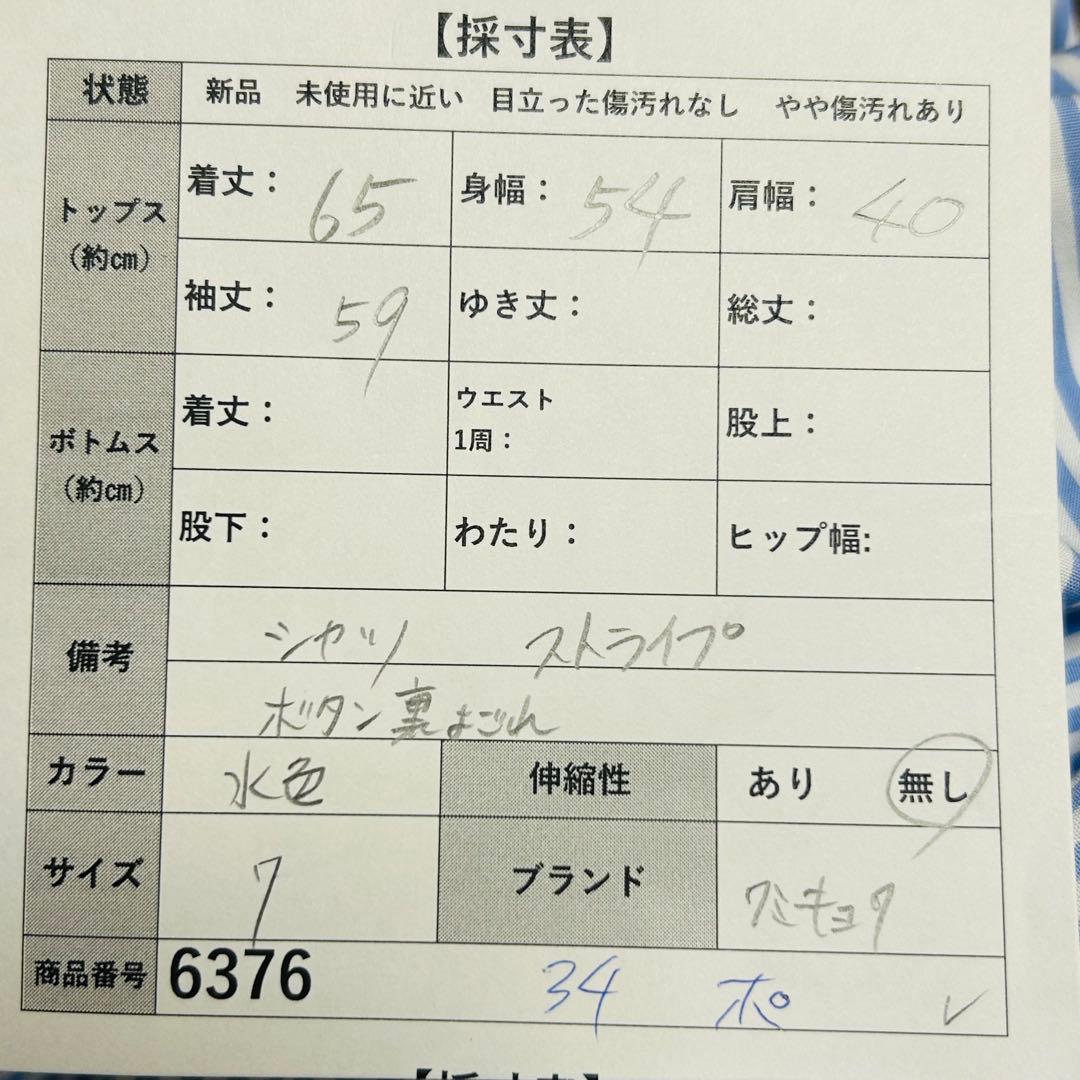 【採寸表】
状態 新品 未使用に近い 目立った傷汚れなし やや傷汚れあり
トップス（約㎝） 着丈： 65 身幅： 54 肩幅： 40
袖丈： 59 ゆき丈： 総丈：
ボトムス（約㎝） 着丈： ウエスト1周： 股上：
股下： わたり： ヒップ幅:
備考 シャツ ストライプ
ボタン裏よごれ
カラー 水色 伸縮性 あり 無し
サイズ 7 ブランド クミキョク
商品番号 6376 34 ポ ✓
【採寸表】